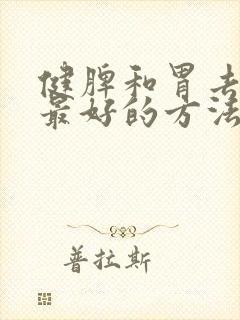 健脾和胃去
最好的方法
普拉斯